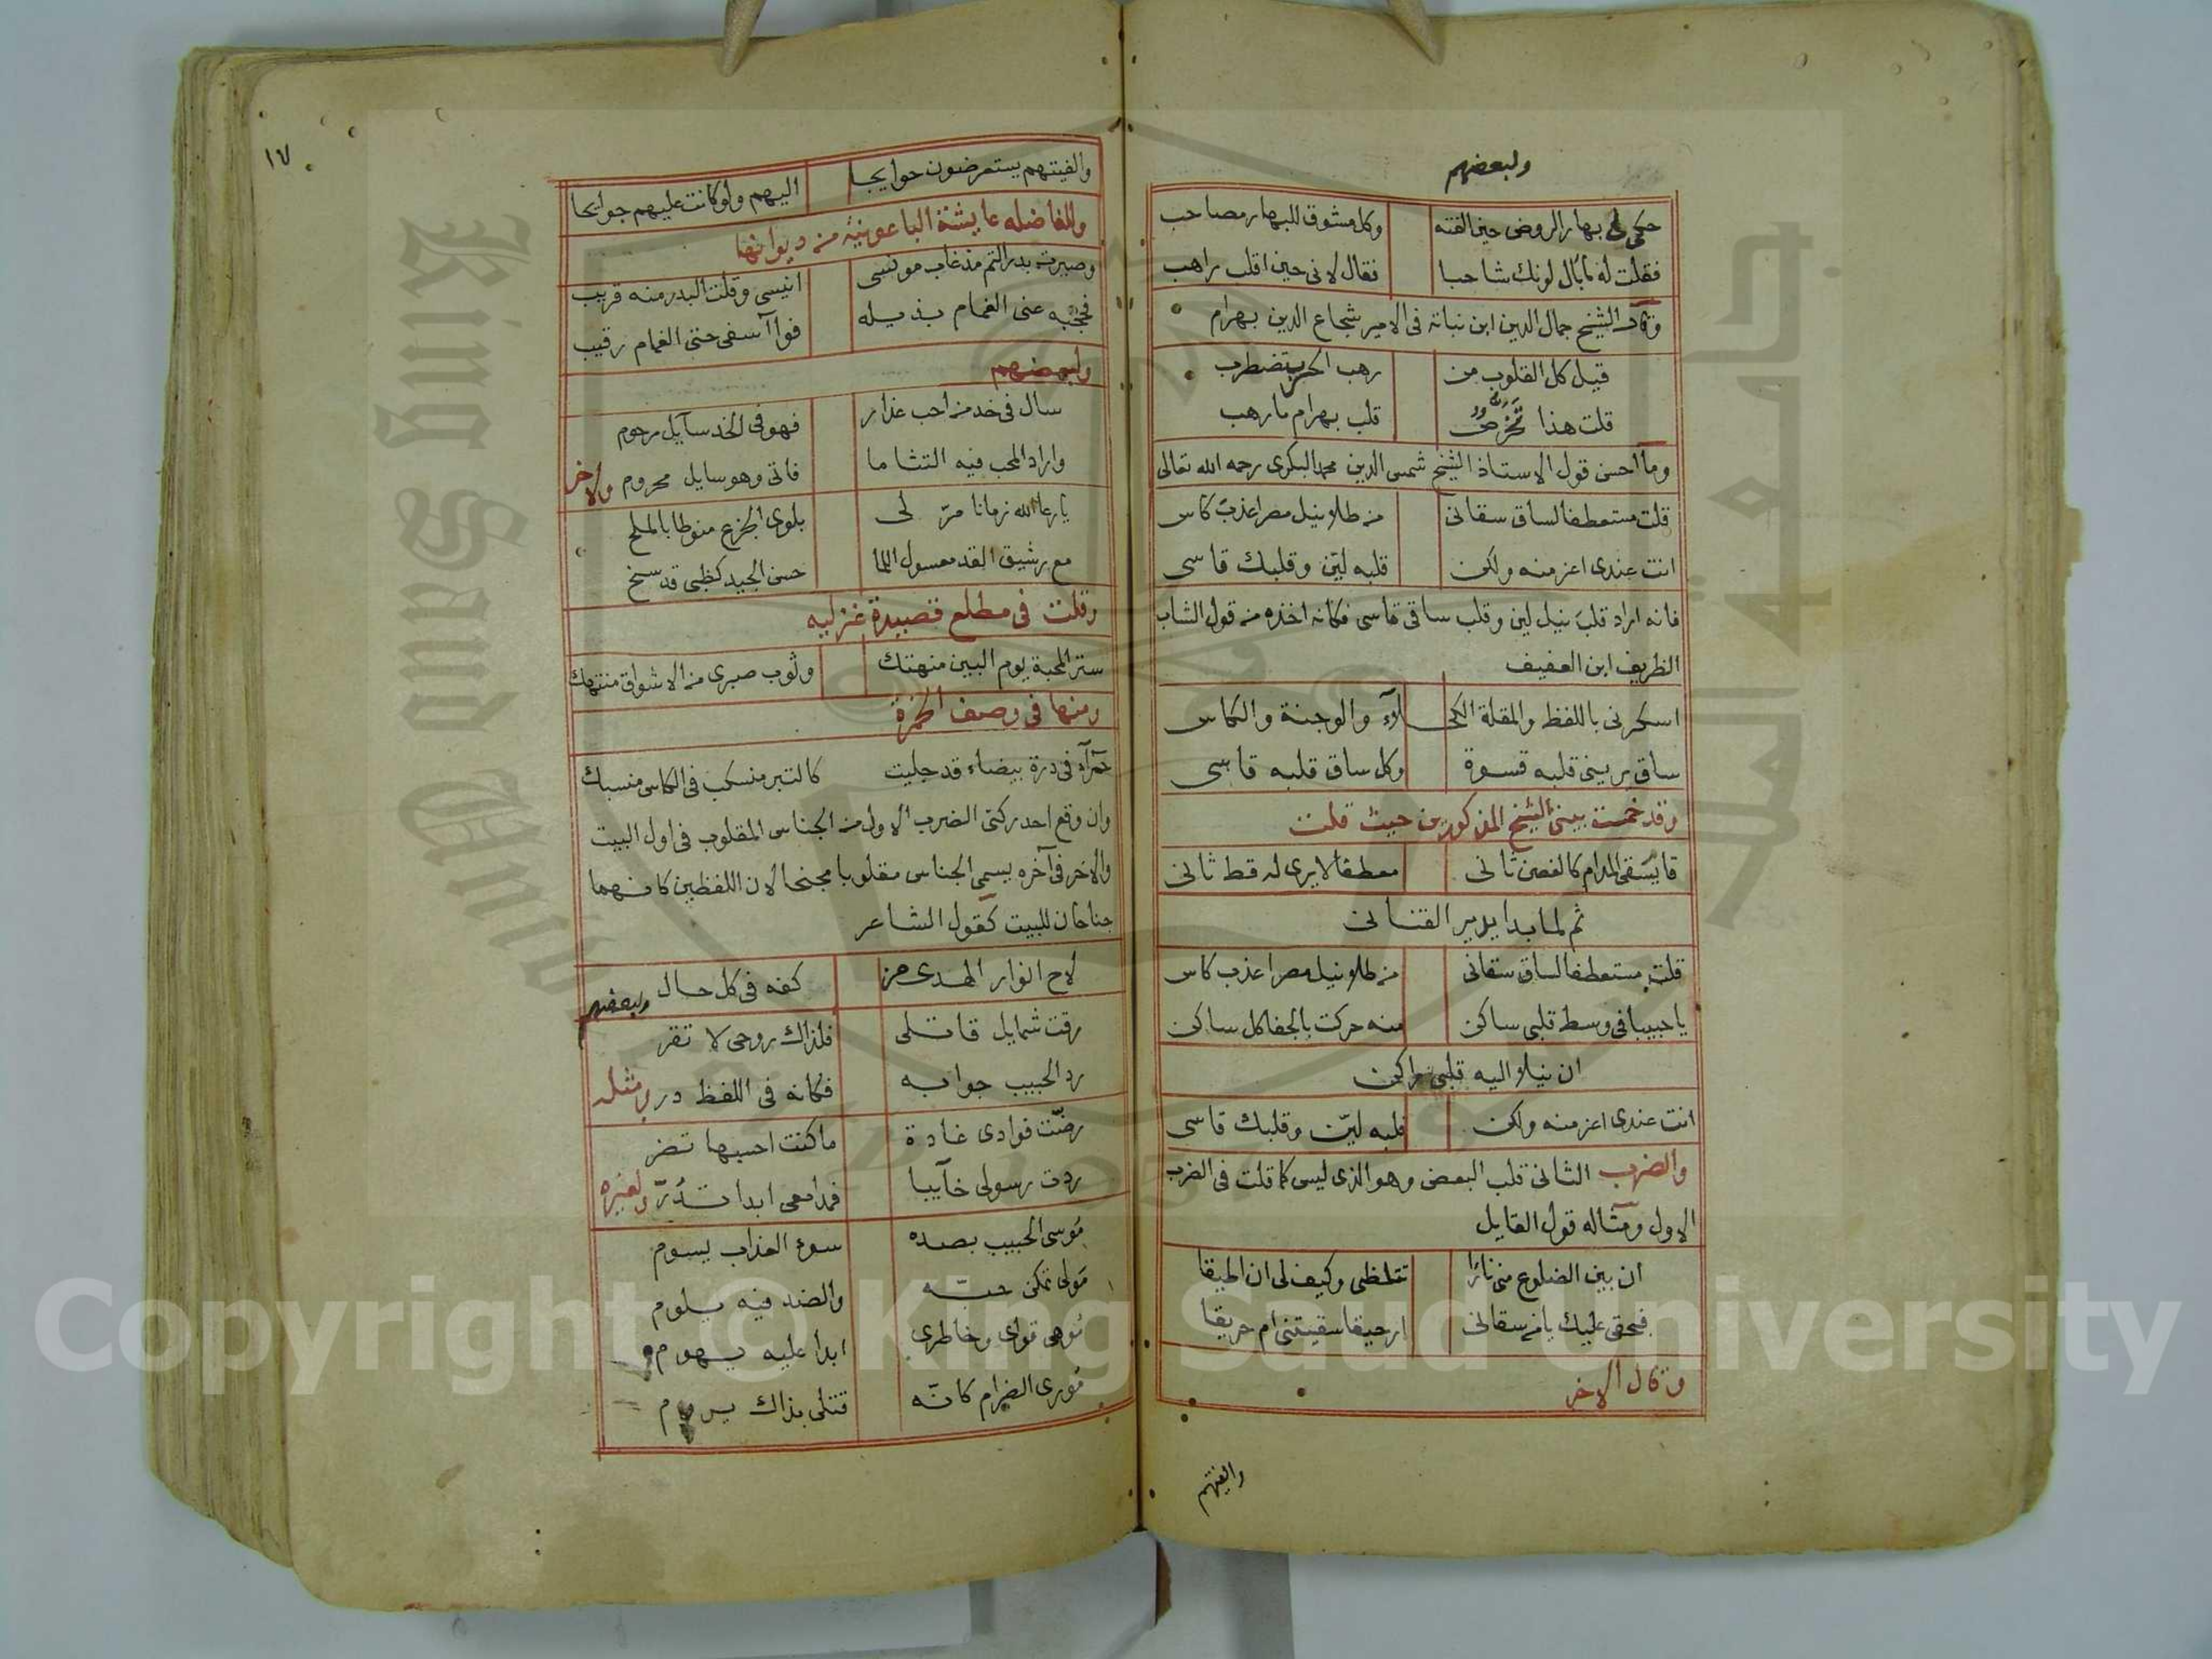 ولبعضهم
حكى لى بهار الروض حين الفته وكل مشوق للبهار مصاحب
فقلت له ما بال لونك شاحبا فقال لانى حين اقلب راهب
وقال الشيخ جمال الدين ابن نباتة فى الامير شجاع الدين بهرام
قيل كل القلوب من رهب الحرب تضطرب
قلت هذا تخرص قلب بهرام ما رهب
وما احسن قول الاستاذ الشيخ شمس الدين محمد البكرى رحمه الله تعالى
قلت مستعطفا لساق سقانى من طلا نيل مصر اعذب كاس
انت عندى اعز منه ولكن قلبه لين وقلبك قاسى
فانه اراد قلب نيل لين وقلب ساقى قاسى فكانه اخذه من قول الشاب
الظريف ابن العفيف
اسكرنى باللفظ والمقلة الكحلاء والوجنة والكاس
ساق يرينى قلبه قسوة وكل ساق قلبه قاسى
وقد خمست بيتى الشيخ المذكورين حيث قلت
قايسقى المدام كالغصن ثانى معطفا لا يرى له قط ثانى
ثم لما بدا يدير القنانى
قلت مستعطفا لساق سقانى من طلا نيل مصر اعذب كاس
يا حبيبا فى وسط قلبى ساكن منه حركت بالجفا كل ساكن
ان نيلا اليه قلبى راكن
انت عندى اعز منه ولكن قلبه لين وقلبك قاسى
والضرب الثانى قلب البعض وهو الذى ليس كما قلت فى الضرب
الاول ومثاله قول القايل
ان بين الضلوع منى نارًا تتلظى وكيف لى ان اطيقا
فبحقى عليك يا من سقانى ارحيقا سقيتنى ام حريقا
وقال الاخر
والفيتهم
١٧
والفيتهم يستعرضون حوايجا اليهم ولو كانت عليهم جوايحا
وللفاضله عايشة الباعونيه من ديوانها
وصيرت بدر التم مذ غاب مونسى انيسى وقلت البدر منه قريب
فحجبه عنى الغمام بذيله فوا آسفى حتى الغمام رقيب
ولبعضهم
سال فى خد من احب عذار فهو فى الخد سآيل مرحوم
واراد المحب فيه التثاما فاتى وهو سايل محروم ولاخر
يا رعا الله زمانا مرّ لى بلوى الجزع منوطا بالملح
مع رشيق القد معسول اللما حسن الجيد كظبى قد سنح
وقلت فى مطلع قصيدة غزليه
ستر المحبة يوم البين منهتك وثوب صبرى من الاشواق منتهك
ومنها فى وصف الخمرة
حمرآء فى درة بيضاء قد جليت كالتبر منسكب فى الكاس منسبك
وان وقع احد ركنى الضرب الاول من الجناس المقلوب فى اول البيت
والاخر فى آخره يسمى الجناس مقلوبا مجنحا لان اللفظين كانهما
جناحان للبيت كقول الشاعر
لاح انوار الهدى من كفه فى كل حال ولبعضهم
رقت شمايل قاتلى فلذاك روحى لا تقر
رد الحبيب جوابه فكانه فى اللفظ در ومثله
رضّت فوادى غادة ما كنت احسبها تضر
ردت رسولى خآيبا فمدامعى ابدا تدرّ ولغيره
موسى الحبيب بصده سوء العذاب يسوم
مولى تمكن حبّه والضد فيه يلوم
موهى قواى وخاطرى ابدا عليه يهوم
مورى الضرام كانّه قتلى بذاك يروم
Copyright © King Saud University
King Saud University